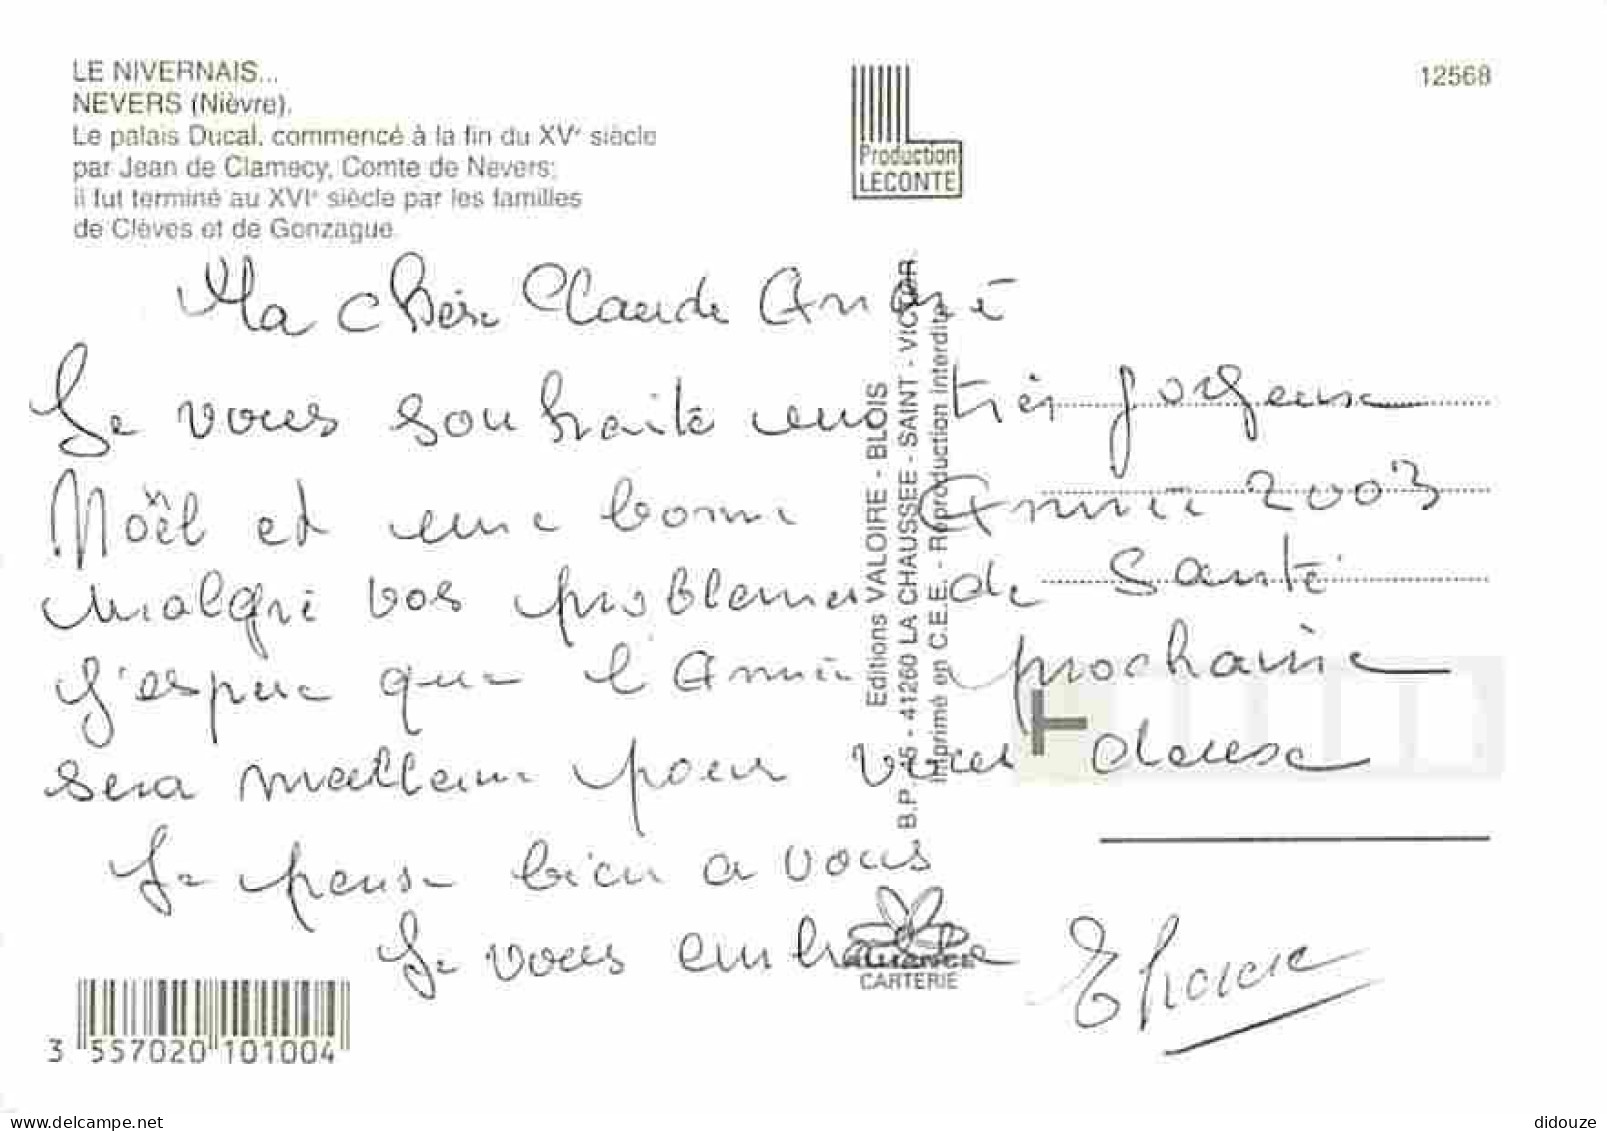 LE NIVERNAIS...
NEVERS (Nièvre).
Le palais Ducal, commencé à la fin du XVe siècle
par Jean de Clamecy, Comte de Nevers;
il fut terminé au XVIe siècle par les familles
de Clèves et de Gonzague.
Production
LECONTE
12568
Ma chère Claude André
Je vous souhaite un très joyeuse
Noël et une bonne Année 2003
malgré vos problemes de Santé
J'espère que l'Année prochaine
sera meilleure pour vous deuse
Je pense bien a vous
Je vous embrasse
Editions VALOIRE - BLOIS
B.P. 45 - 41260 LA CHAUSSEE - SAINT - VICTOR.
Imprimé en C.E.E. - Reproduction interdite
ALLIANCE
CARTERIE
3 557020 101004
delcampe.net
didouze